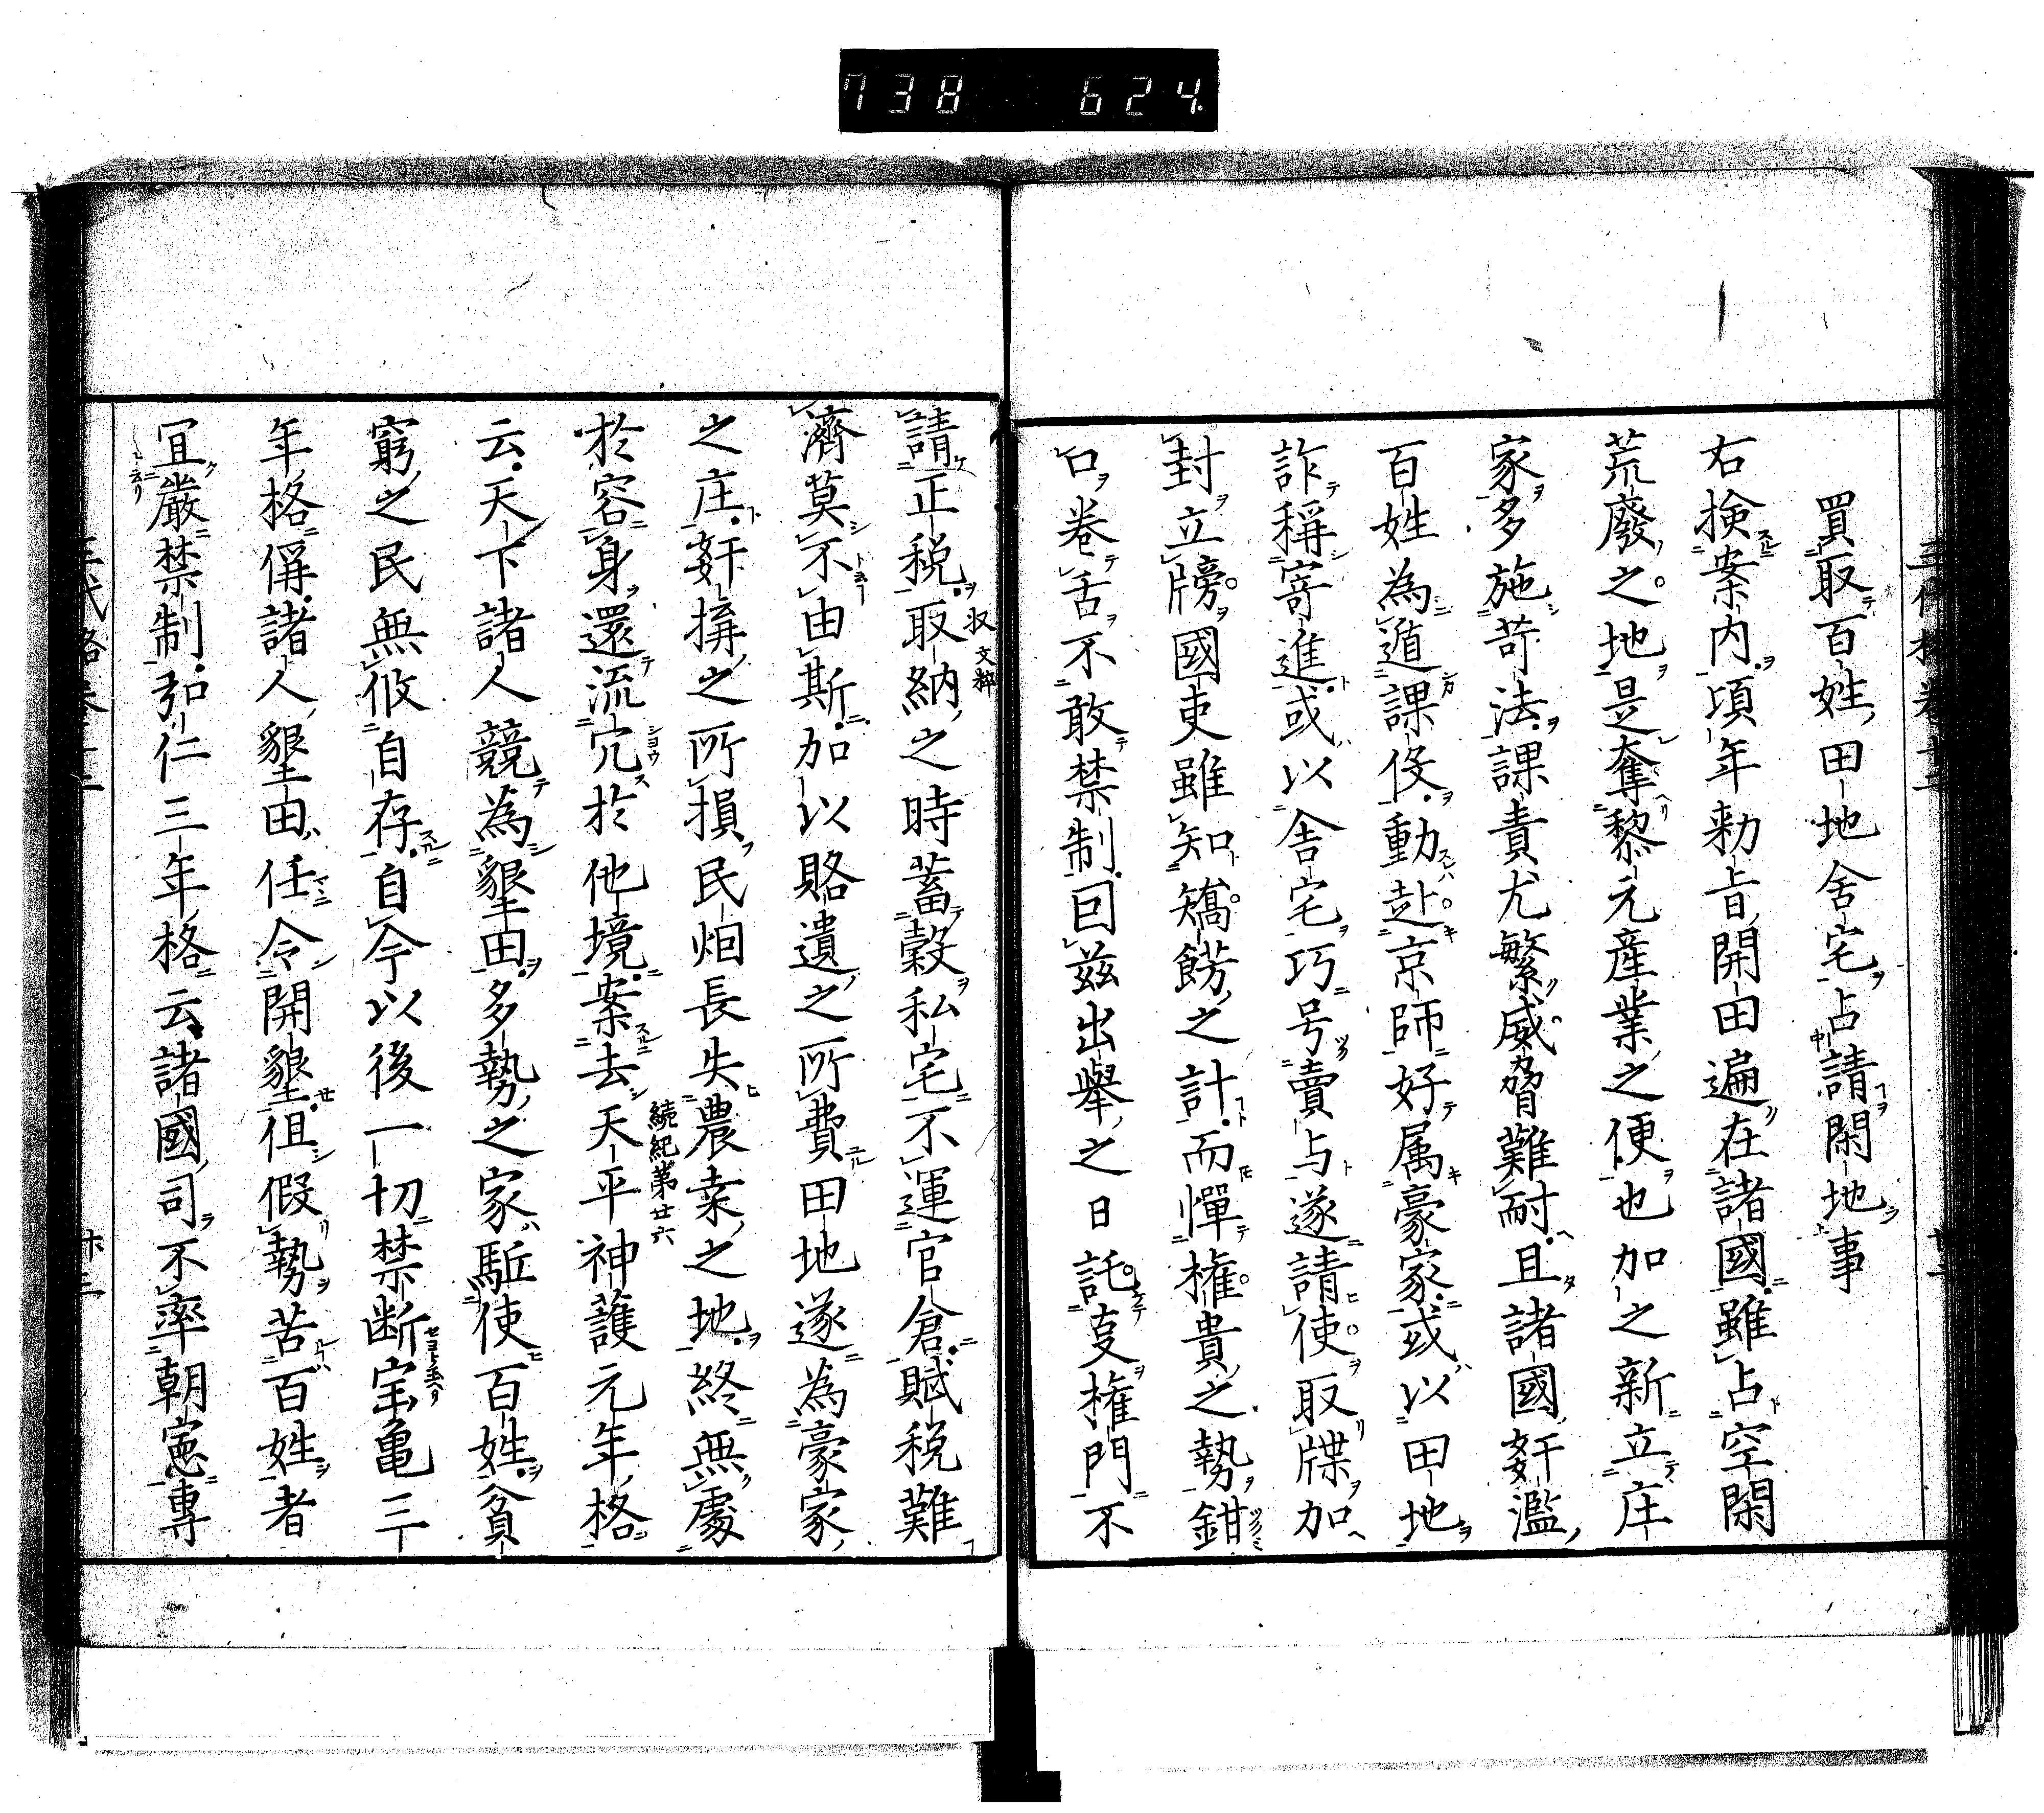 738 624
買取百姓田地舍宅占請閑地事
右撿案内頃年勅旨開田遍在諸國雖占空閑
荒廢之地是奪黎元産業之便也加之新立庄
家多施苛法課責尤繁威脅難耐且諸國姧濫
百姓為遁課役動赴京師好属豪家或以田地
詐稱寄進或以舍宅巧号賣与遂請使取牒加
封立牓國吏雖知矯餝之計而憚權貴之勢鉗
口卷舌不敢禁制因兹出舉之日託㕝權門不
請正税取納之時蓄穀私宅不運官倉賦税難
収 文粹
濟莫不由斯加以賂遺之所費田地遂為豪家
之庄姧搆之所損民烟長失農桒之地終無處
於容身還流冗於他境案去天平神護元年格
続紀第廿六
云天下諸人競為墾田多勢之家駈使百姓貧
窮之民無攸自存自今以後一切禁断宝亀三
年格偁諸人墾田任令開墾但假勢苦百姓者
宜嚴禁制弘仁三年格云諸國司不率朝憲專
三代格卷